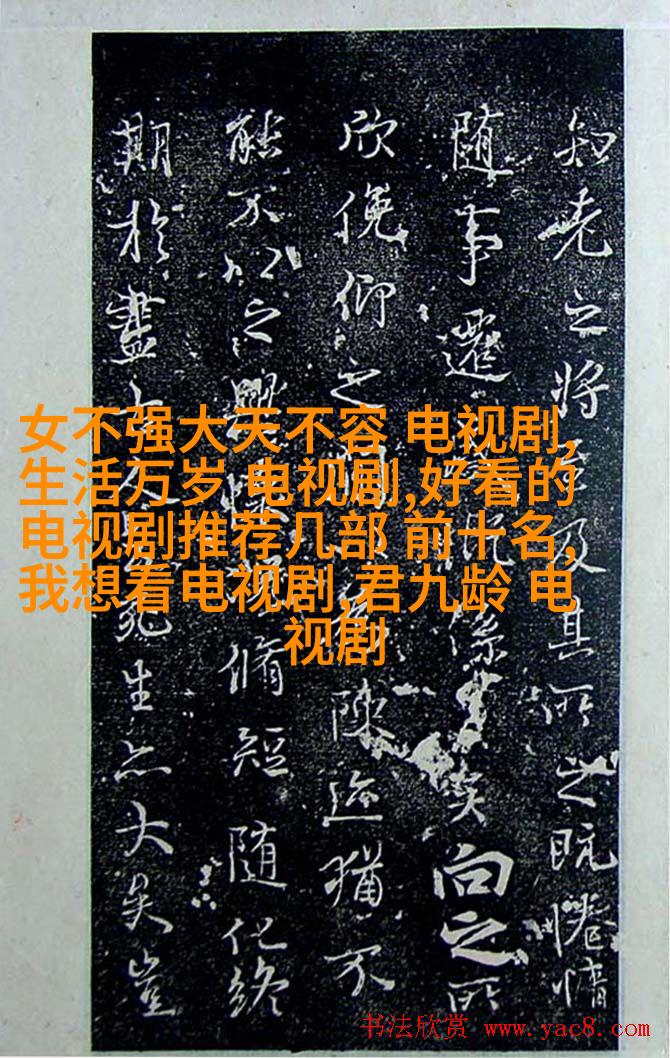 女不强大天不容 电视剧,
生活万岁 电视剧,好看的
电视剧推荐几部 前十名,
我想看电视剧,君九龄 电
视剧
知老之將至及其所之既惓情
随事遷慨係之矣向之所
欣俛仰之間陳迹猶不
能不以之興懷脩短随化終
期於盡人死生亦大矣豈
书法欣赏 www.yac8.com